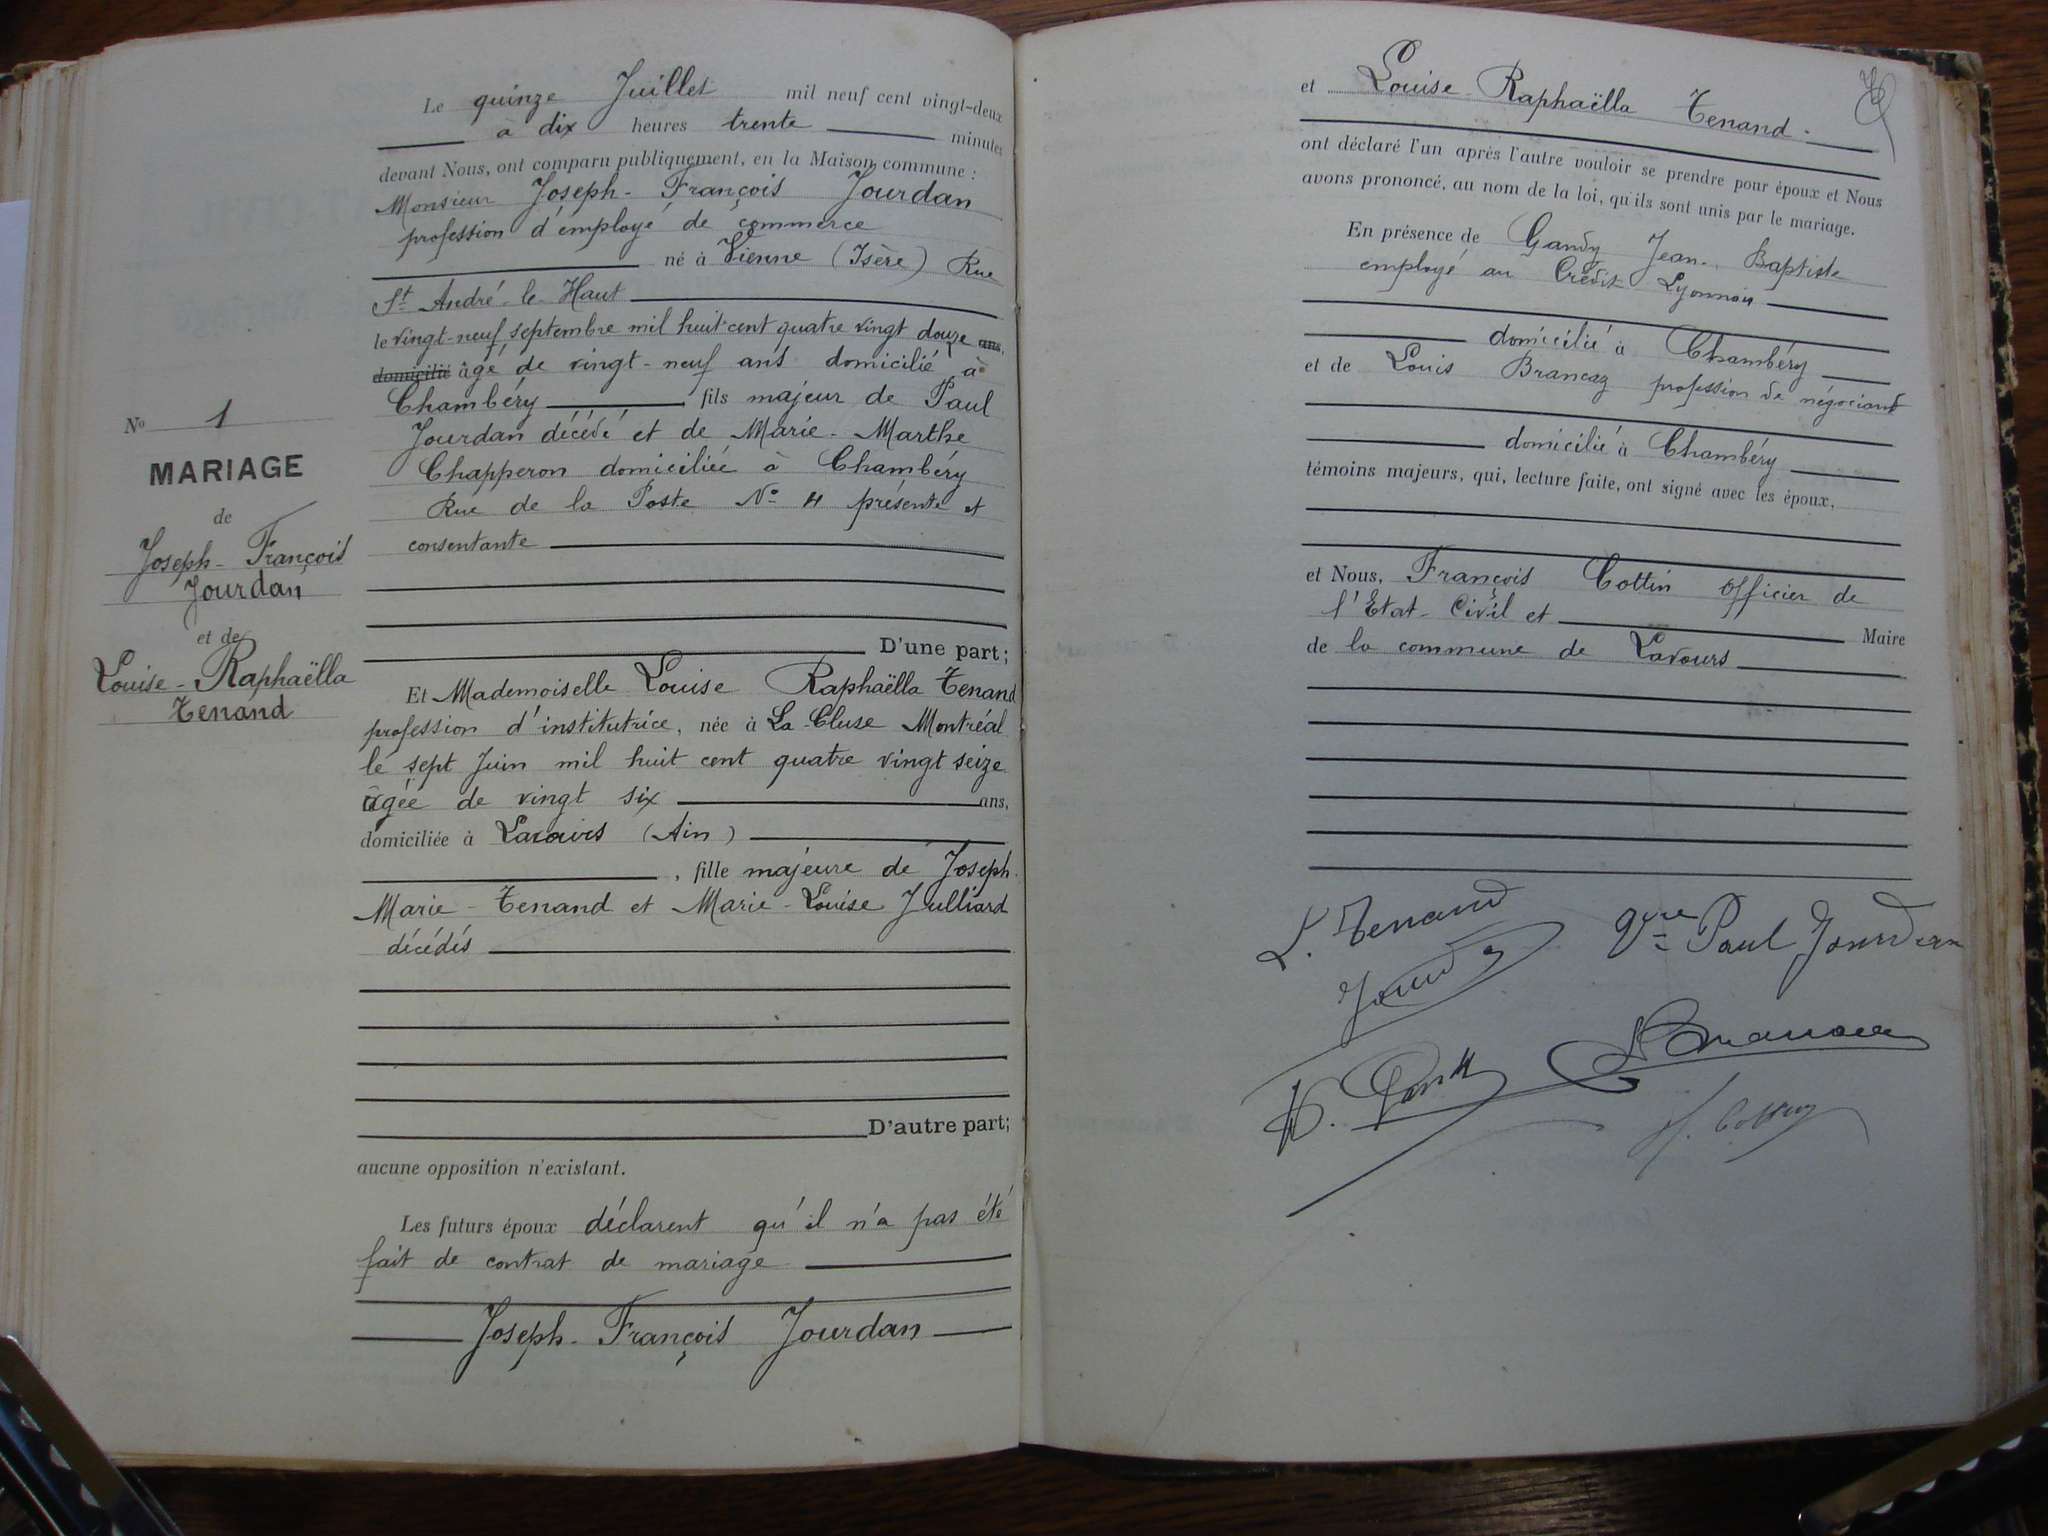 Le quinze Juillet mil neuf cent vingt-deux
à dix heures trente minutes
devant Nous, ont comparu publiquement, en la Maison commune :
Monsieur Joseph-François Jourdan
profession d'employé de commerce
né à Vienne (Isère) Rue
St André-le-Haut
le vingt-neuf septembre mil huit cent quatre vingt douze ans,
domicilié âgé de vingt-neuf ans domicilié à
Chambéry fils majeur de Paul
Jourdan décédé et de Marie-Marthe
Chapperon domiciliée à Chambéry
Rue de la Poste No 4 présente et
consentante
D'une part;
No 1
MARIAGE
de
Joseph-François
Jourdan
et de
Louise-Raphaëlla
Tenand
Et Mademoiselle Louise Raphaëlla Tenand
profession d'institutrice, née à La Cluse Montréal
le sept Juin mil huit cent quatre vingt seize
âgée de vingt six ans,
domiciliée à Lavours (Ain)
, fille majeure de Joseph
Marie-Tenand et Marie-Louise Julliard
décédés
D'autre part;
aucune opposition n'existant.
Les futurs époux déclarent qu'il n'a pas été
fait de contrat de mariage
Joseph-François Jourdan
et Louise-Raphaëlla Tenand.
ont déclaré l'un après l'autre vouloir se prendre pour époux et Nous
avons prononcé, au nom de la loi, qu'ils sont unis par le mariage.
En présence de Gandy Jean-Baptiste
employé au Crédit Lyonnais
domicilié à Chambéry
et de Louis Brancaz profession de négociant
domicilié à Chambéry
témoins majeurs, qui, lecture faite, ont signé avec les époux,
et Nous, François Cottin officier de
l'Etat-Civil et Maire
de la commune de Lavours
L. Tenand
Vve Paul Jourdan